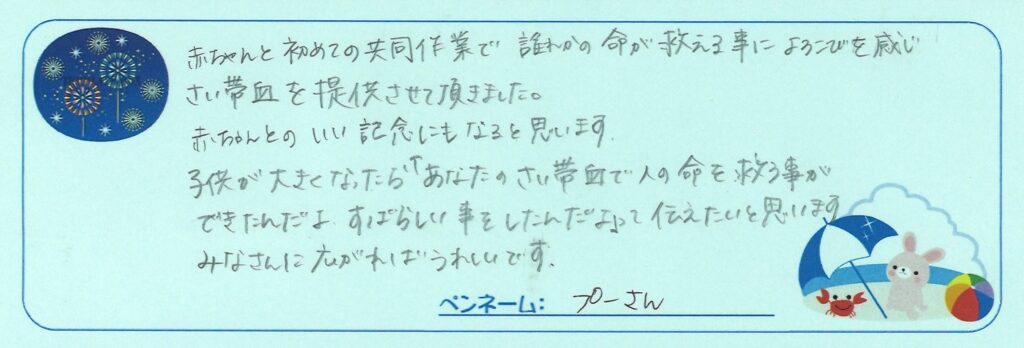 赤ちゃんと初めての共同作業で 誰れかの命が救える事によろこびを感じ
さい帯血を提供させて頂きました。
赤ちゃんとのいい記念にもなると思います.
子供が大きくなったら「あなたのさい帯血で人の命を救う事が
できたんだよ.すばらしい事をしたんだよ」って伝えたいと思います
みなさんに広がればうれしいです.
ペンネーム: プーさん